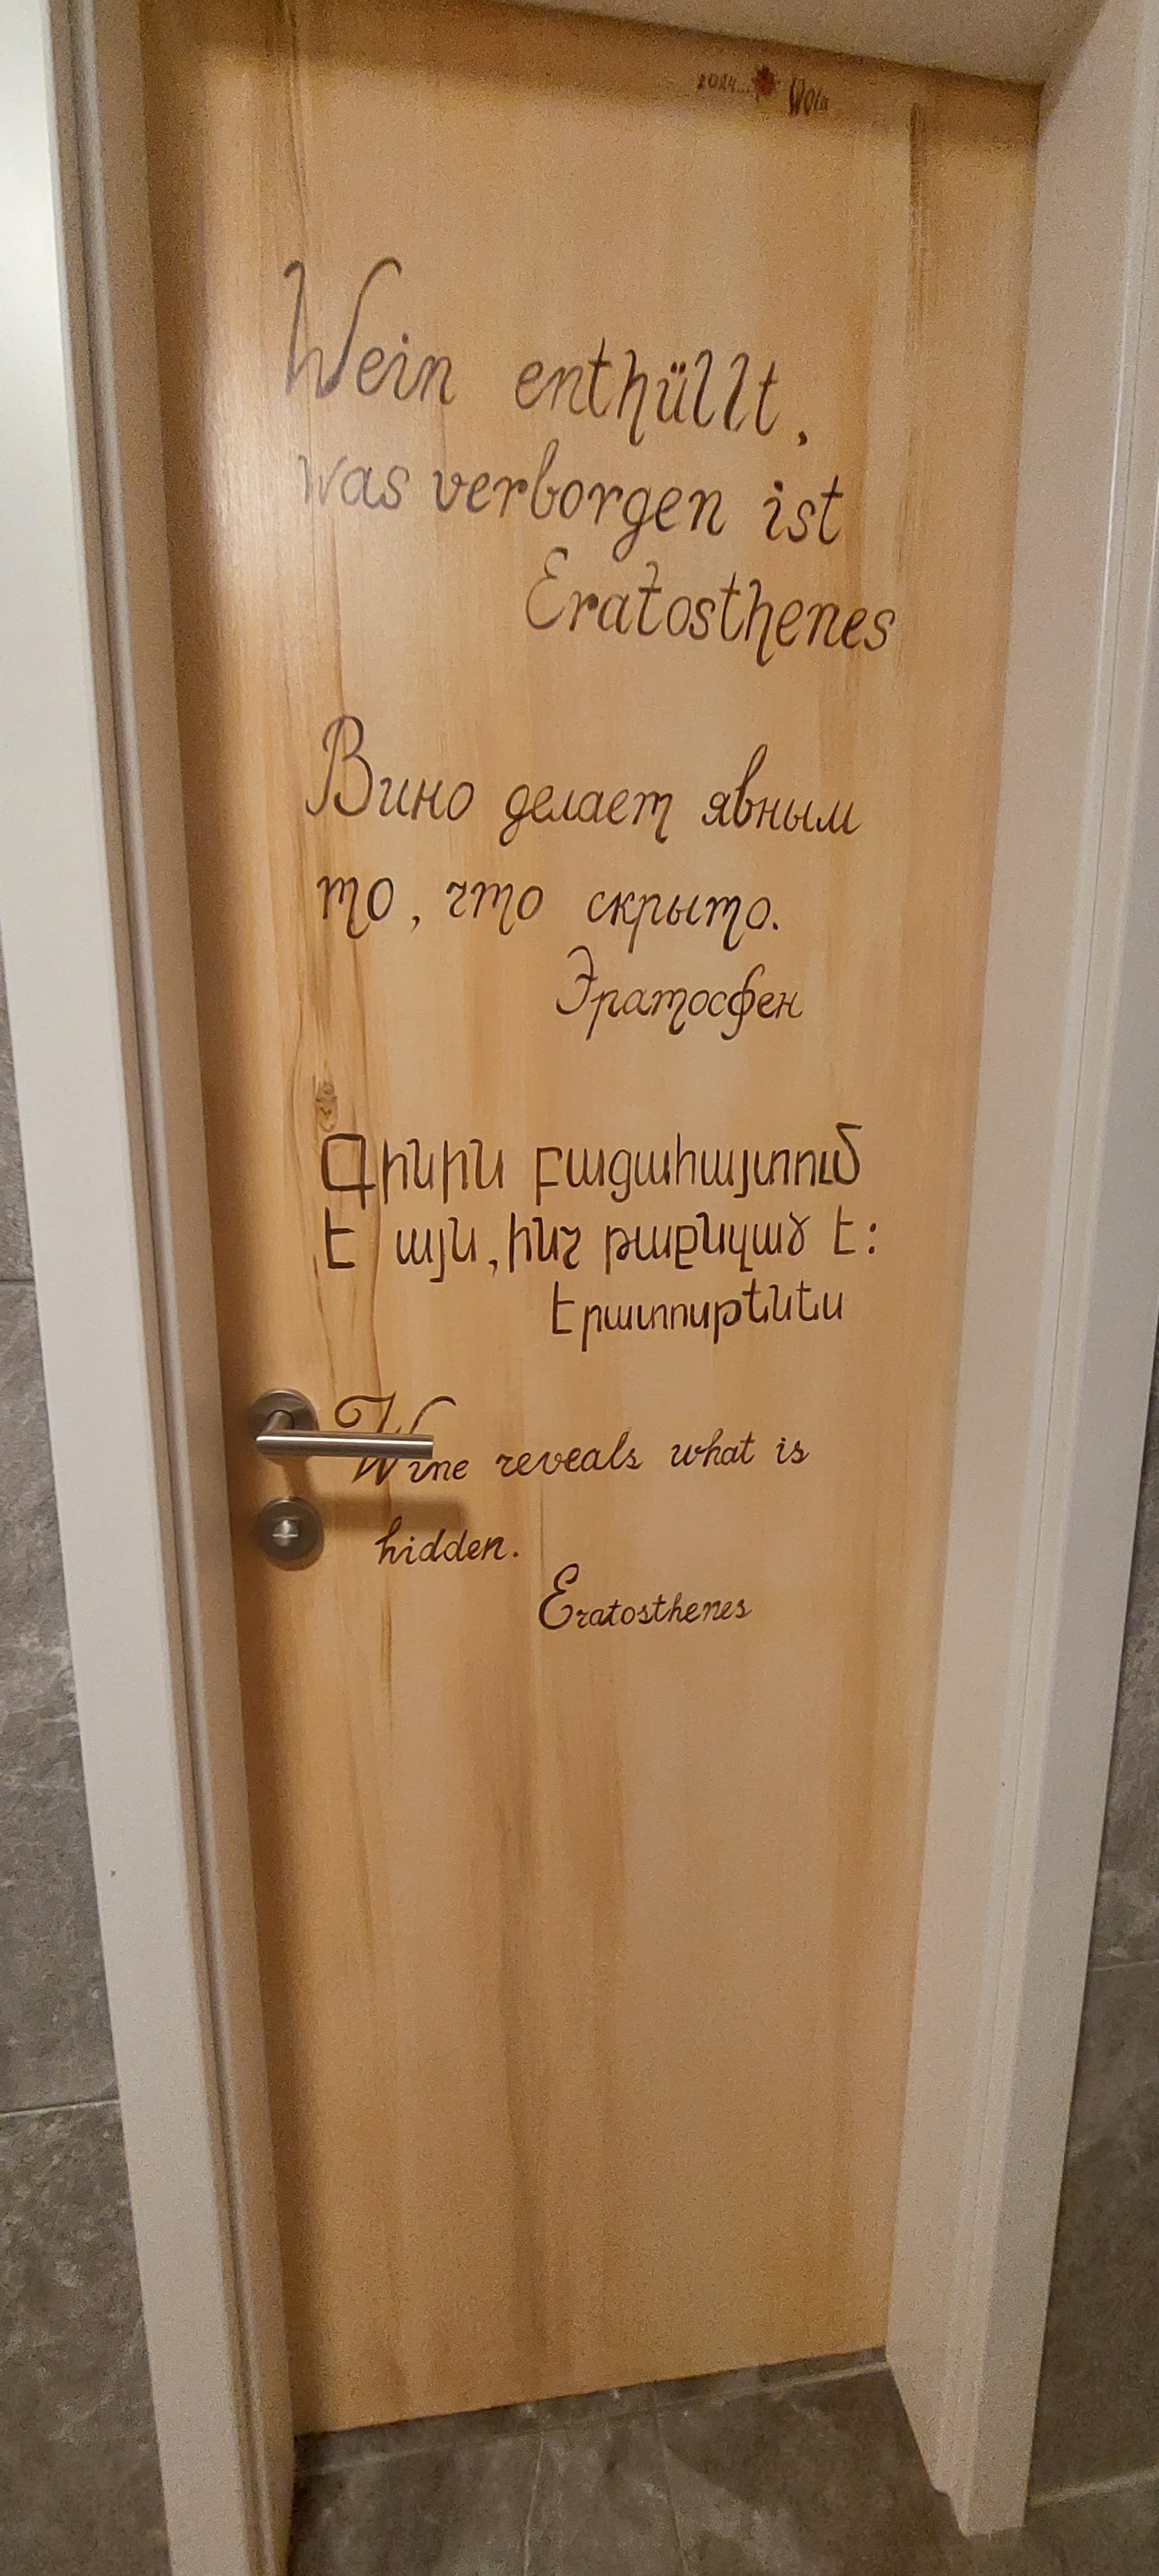 2024...
Wein enthüllt,
was verborgen ist
Eratosthenes
Вино делает явным
то, что скрыто.
Эратосфен
Գինին բացահայտում
է այն, ինչ թաքնված է:
Էրատոսթենես
Wine reveals what is
hidden.
Eratosthenes